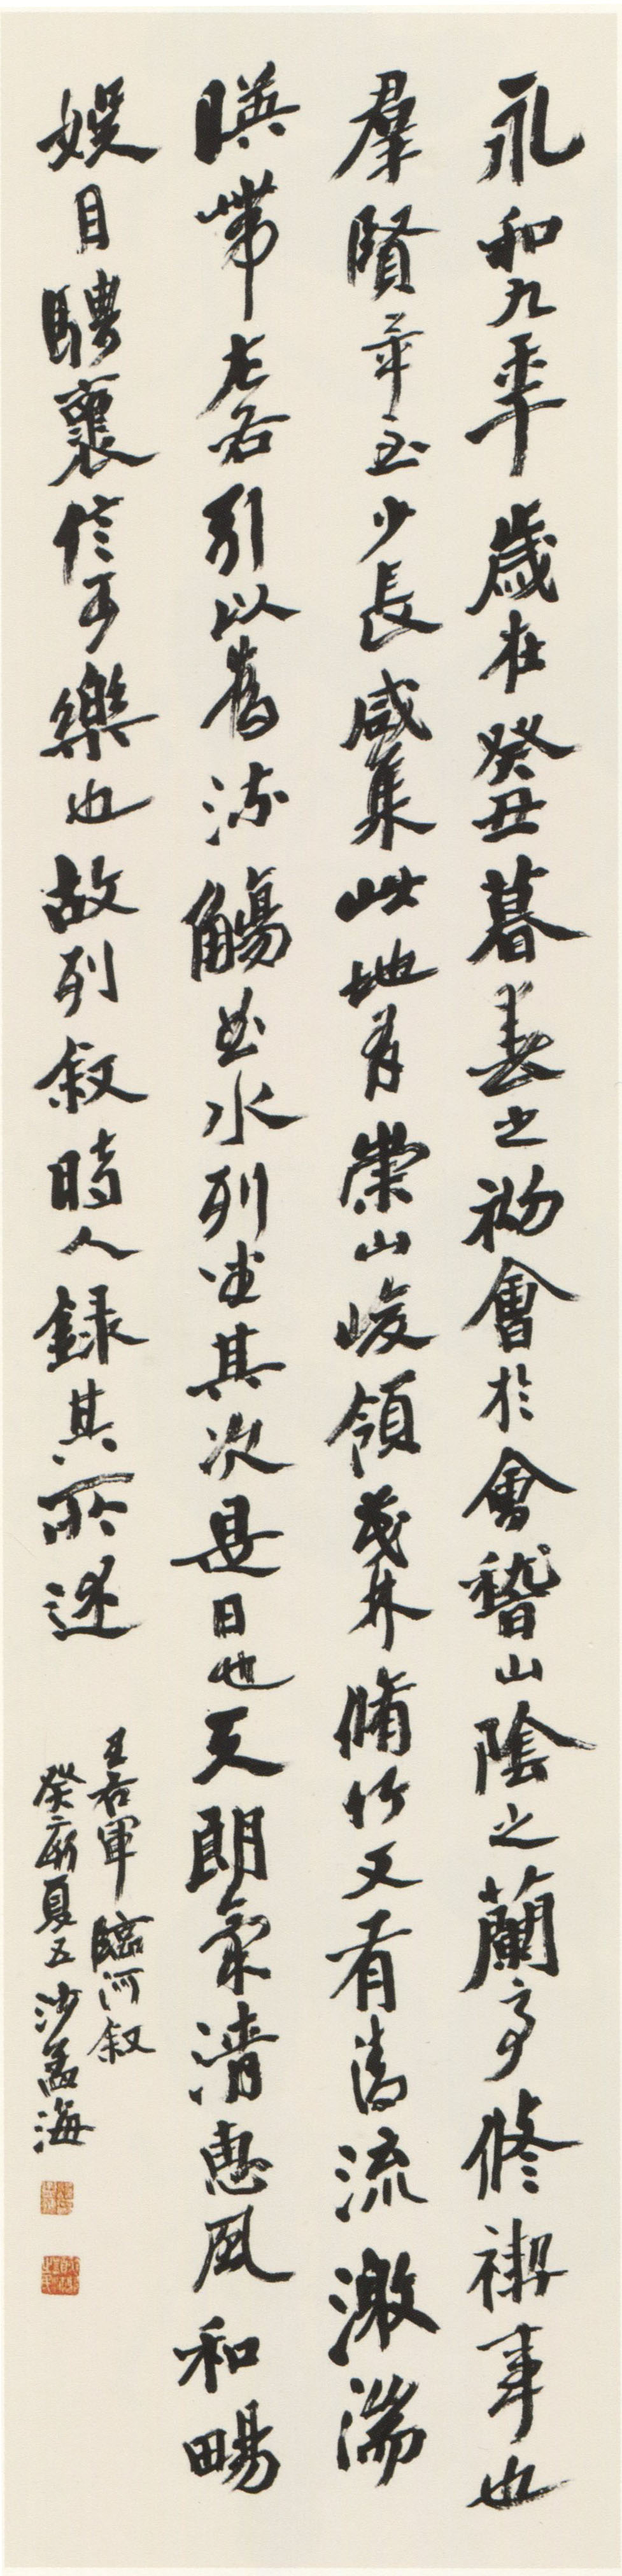 永和九年歲在癸丑暮春之初會於會稽山陰之蘭亭修禊事也
羣賢畢至少長咸集此地有崇山峻領茂林脩竹又有清流激湍
暎帶左右引以為流觴曲水列坐其次是日也天朗氣清惠風和暢
娛目騁褱信可樂也故列敘時人錄其所述
王右軍臨河敘
癸酉夏五沙孟海